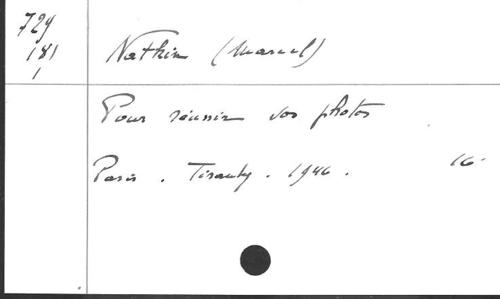 729
181
1
Nathin (Marcel)
Pour réussir vos photos
Paris . Tiranty . 1946 . 16